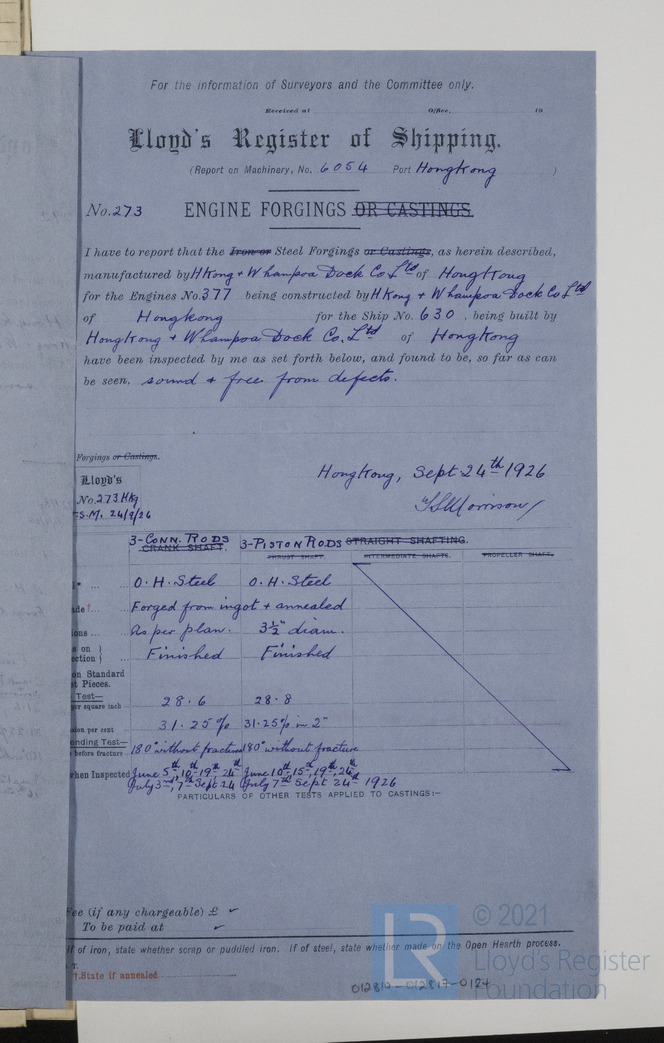 For the information of Surveyors and the Committee only.
Received at Office, 19
Lloyd's Register of Shipping.
(Report on Machinery, No. 6054 Port HongKong )
No. 273 ENGINE FORGINGS OR CASTINGS.
I have to report that the Iron or Steel Forgings or Castings, as herein described,
manufactured by HKong + Whampoa Dock Co Ltd of HongKong
for the Engines No. 377 being constructed by HKong + Whampoa Dock Co Ltd
of Hongkong for the Ship No. 630, being built by
HongKong + Whampoa Dock Co. Ltd of Hongkong
have been inspected by me as set forth below, and found to be, so far as can
be seen, sound + free from defects.
Forgings or Castings.
Lloyd's
No. 273 HKg
S.M. 24/9/26
HongKong, Sept 24th 1926
Morrison
3-CONN. RODS 3-PISTON RODS STRAIGHT SHAFTING.
CRANK SHAFT. THRUST SHAFT. INTERMEDIATE SHAFTS. PROPELLER SHAFT.
O.H. Steel O.H. Steel
Forged from ingot + annealed
As per plan. 3½" diam.
Finished Finished
on Standard
Pieces.
Test—
per square inch 28.6 28.8
per cent 31.25% 31.25% in 2"
ending Test—
before fracture 180° without fracture 180° without fracture
when Inspected June 5th, 10th 19th 24th June 10th 15th, 19th, 24th
July 3rd, 7th Sept 24 July 7th Sept 24th 1926
PARTICULARS OF OTHER TESTS APPLIED TO CASTINGS:—
Fee (if any chargeable) £
To be paid at
If of iron, state whether scrap or puddled iron. If of steel, state whether made on the Open Hearth process.
†.State if annealed
012810-012817-0124
LR
© 2021
Lloyd's Register
Foundation